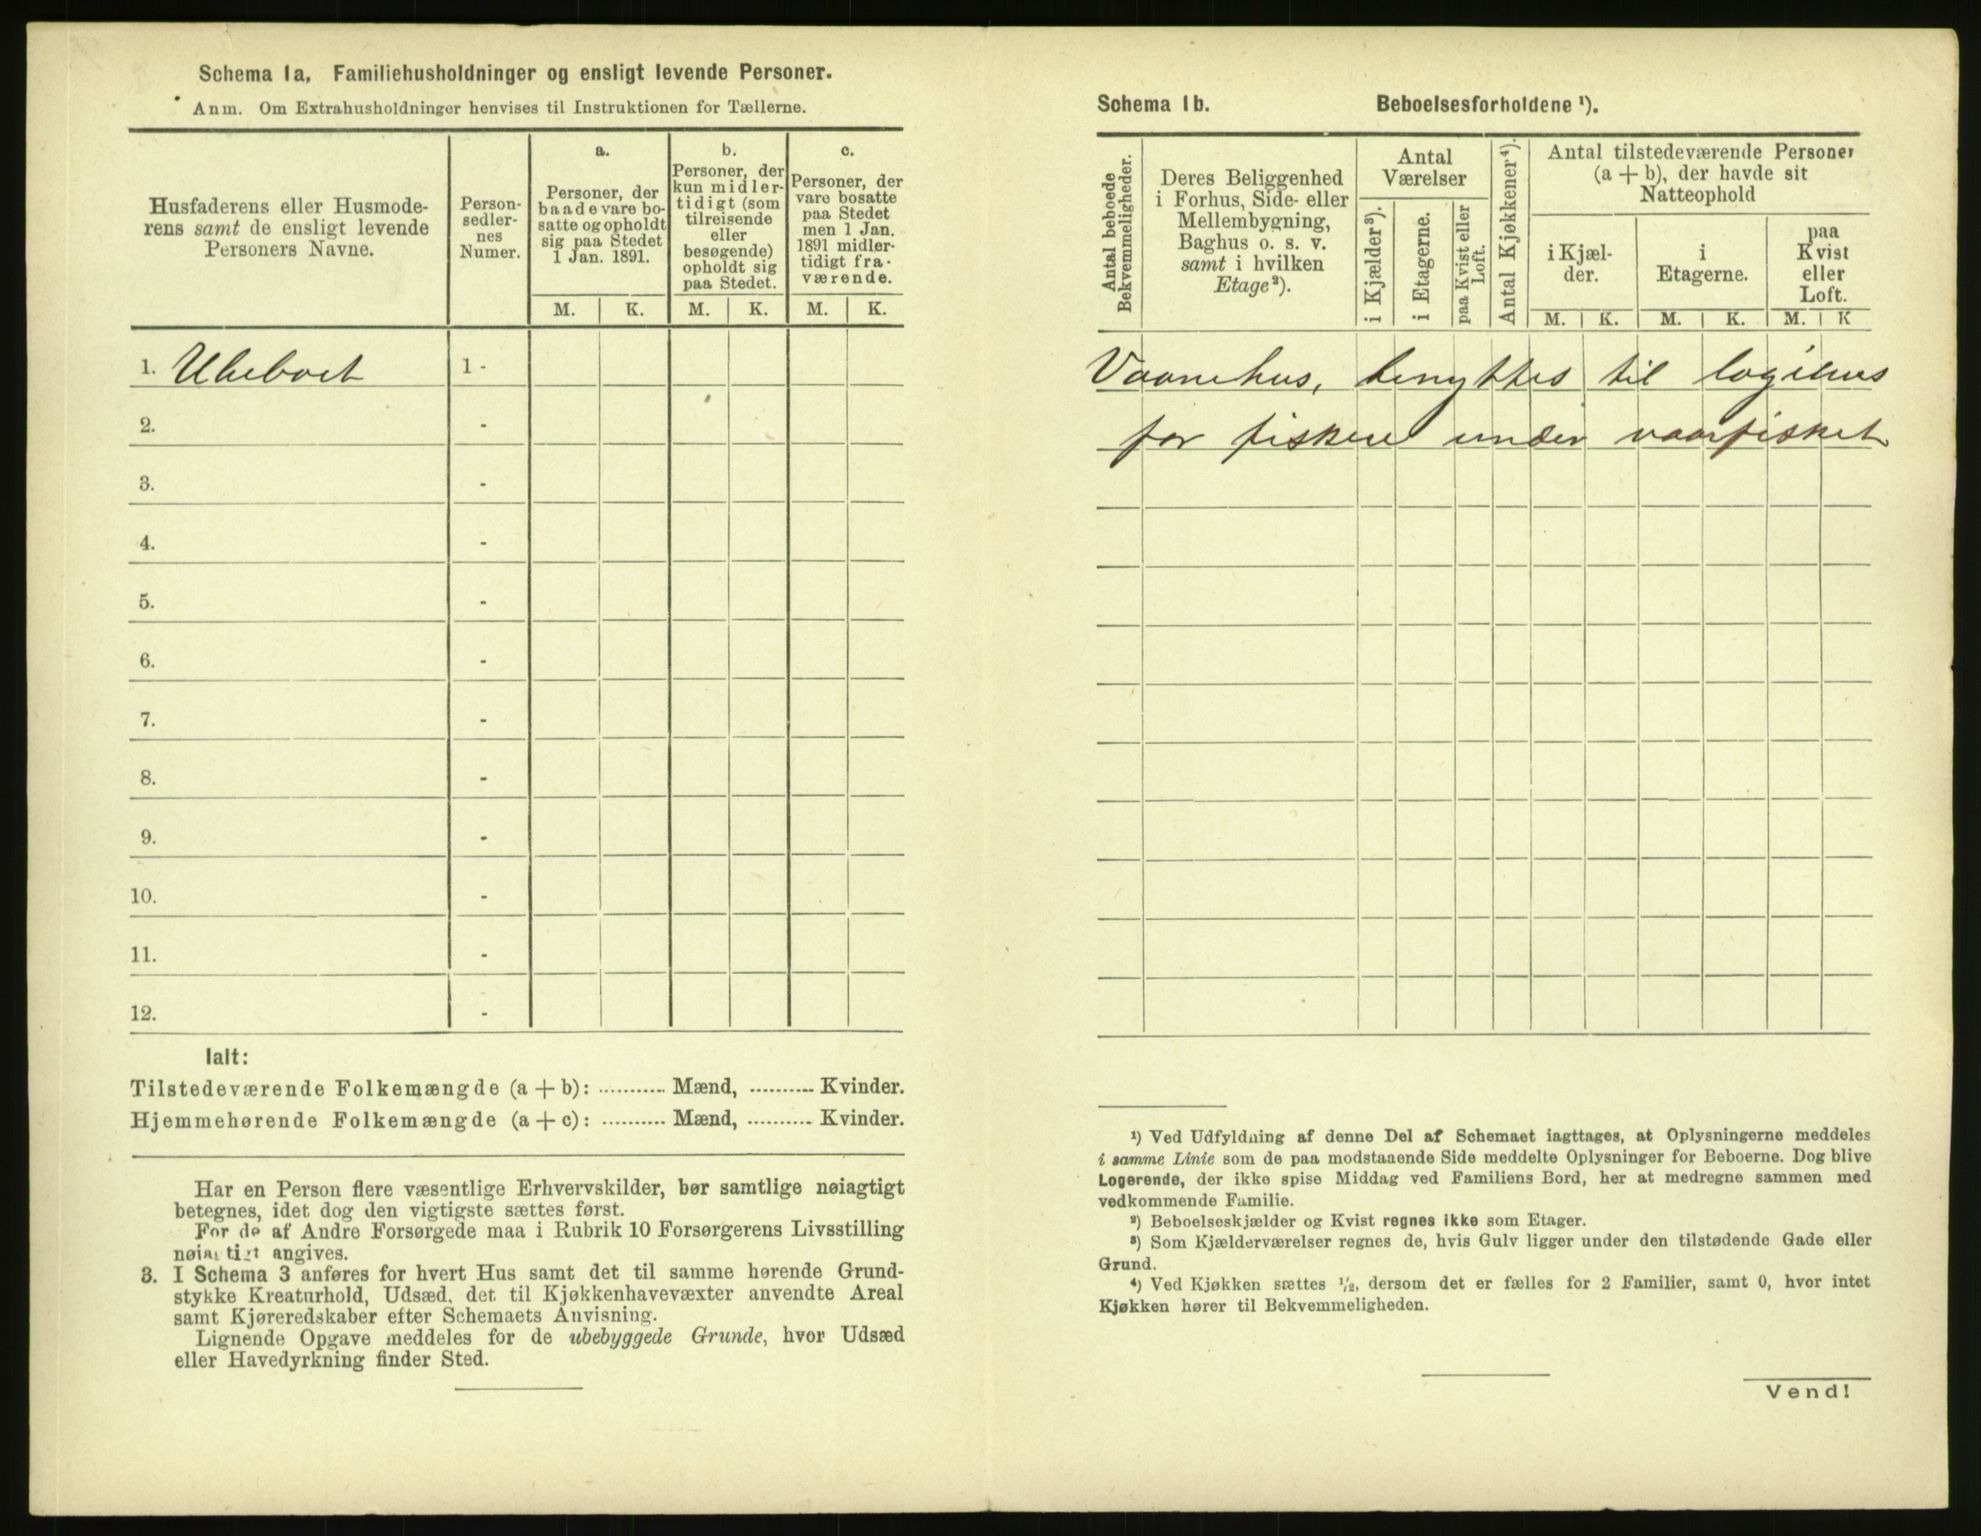 Schema 1a. Familiehusholdninger og ensligt levende Personer.
Anm. Om Extrahusholdninger henvises til Instruktionen for Tællerne.
Husfaderens eller Husmode-
rens samt de ensligt levende
Personers Navne.
Person-
sedler-
nes
Numer.
a.
Personer, der
baade vare bo-
satte og opholdt
sig paa Stedet
1 Jan. 1891.
b.
Personer, der
kun midler-
tidigt (som
tilreisende
eller
besøgende)
opholdt sig
paa Stedet.
c.
Personer, der
vare bosatte
paa Stedet
men 1 Jan.
1891 midler-
tidigt fra-
værende.
M. K. M. K. M. K.
1. Ubeboet 1 -
2. -
3. -
4. -
5. -
6. -
7. -
8. -
9. -
10. -
11. -
12. -
Ialt:
Tilstedeværende Folkemængde (a + b): ........... Mænd, .......... Kvinder.
Hjemmehørende Folkemængde (a + c): ........... Mænd, .......... Kvinder.
Har en Person flere væsentlige Erhvervskilder, bør samtlige nøiagtigt
betegnes, idet dog den vigtigste sættes først.
For de af Andre Forsørgede maa i Rubrik 10 Forsørgerens Livsstilling
nøiagtigt angives.
3. I Schema 3 anføres for hvert Hus samt det til samme hørende Grund-
stykke Kreaturhold, Udsæd, det til Kjøkkenhavevæxter anvendte Areal
samt Kjøreredskaber efter Schemaets Anvisning.
Lignende Opgave meddeles for de ubebyggede Grunde, hvor Udsæd
eller Havedyrkning finder Sted.
Schema 1b. Beboelsesforholdene ¹).
Antal beboede
Bekvemmeligheder.
Deres Beliggenhed
i Forhus, Side- eller
Mellembygning,
Baghus o. s. v.
samt i hvilken
Etage ²).
Antal
Værelser
i Kjælder ³).
i Etagerne.
paa Kvist eller
Loft.
Antal Kjøkkener ⁴).
Antal tilstedeværende Personer
(a + b), der havde sit
Natteophold
i Kjæl-
der.
i
Etagerne.
paa
Kvist
eller
Loft.
M. K. M. K. M. K
Vaanehus, benyttes til logihus
for fiskere under vaarfisket
¹) Ved Udfyldning af denne Del af Schemaet iagttages, at Oplysningerne meddeles
i samme Linie som de paa modstaaende Side meddelte Oplysninger for Beboerne. Dog blive
Logerende, der ikke spise Middag ved Familiens Bord, her at medregne sammen med
vedkommende Familie.
²) Beboelseskjælder og Kvist regnes ikke som Etager.
³) Som Kjælderværelser regnes de, hvis Gulv ligger under den tilstødende Gade eller
Grund.
⁴) Ved Kjøkken sættes ½, dersom det er fælles for 2 Familier, samt 0, hvor intet
Kjøkken hører til Bekvemmeligheden.
Vend!